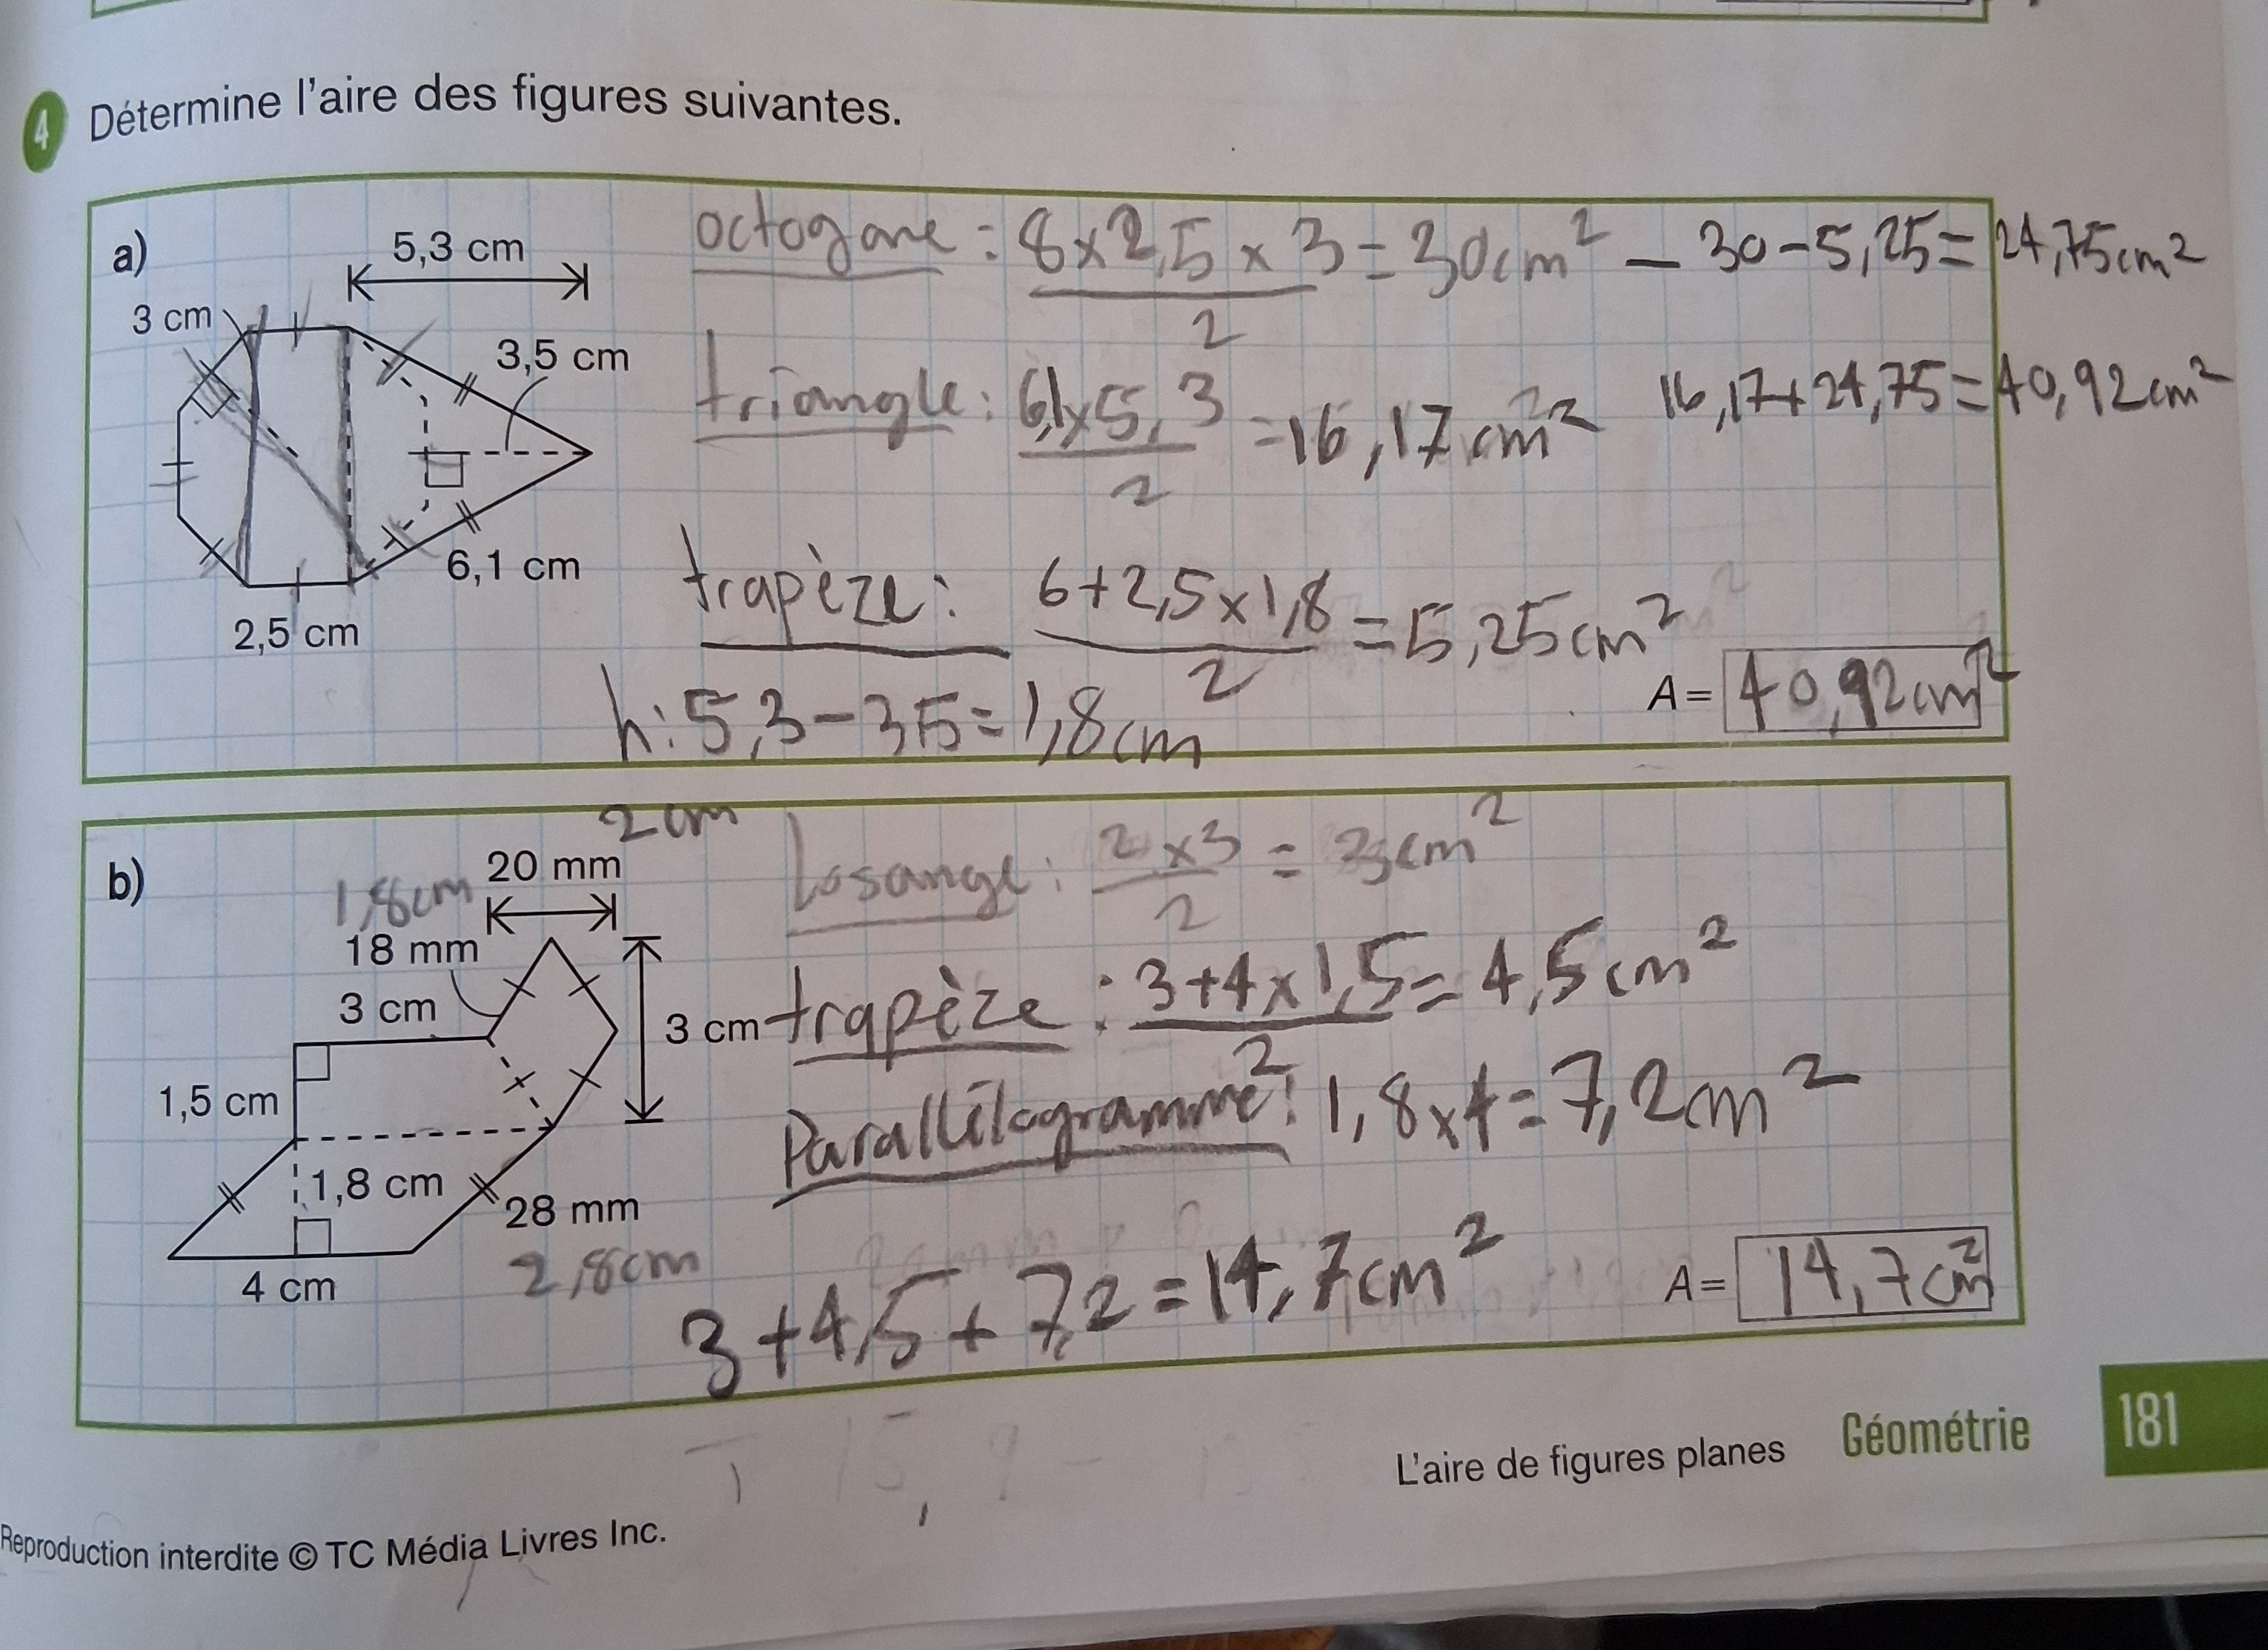 4 Détermine l'aire des figures suivantes.
a)
5,3 cm
3 cm
3,5 cm
6,1 cm
2,5 cm
octogone : 8x2,5 x 3 = 30cm² — 30-5,25= 24,75cm²
2
triangle : 6,1x5,3 =16,17cm² 16,17+24,75=40,92cm²
2
trapèze: 6+2,5x1,8 =5,25cm²
2
h: 5,3-3,5=1,8cm
A= 40,92cm²
b)
2cm
20 mm
1,8cm
18 mm
3 cm
3 cm
1,5 cm
1,8 cm
28 mm
2,8cm
4 cm
losange: 2x3 = 3cm²
2
trapèze : 3+4x1,5= 4,5cm²
2
Parallélogramme: 1,8x4=7,2cm²
3+4,5+7,2=14,7cm²
A= 14,7cm²
L'aire de figures planes Géométrie 181
Reproduction interdite © TC Média Livres Inc.